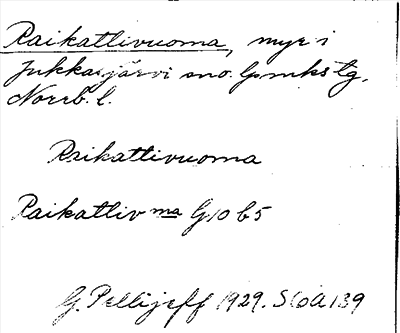 Raikattivuoma, myr i
Jukkasjärvi sno. Lpmks tg.
Norrb. l.
Raikattivuoma
Raikattiv ma G10 b5
G. Pellijeff 1929. SOA 139